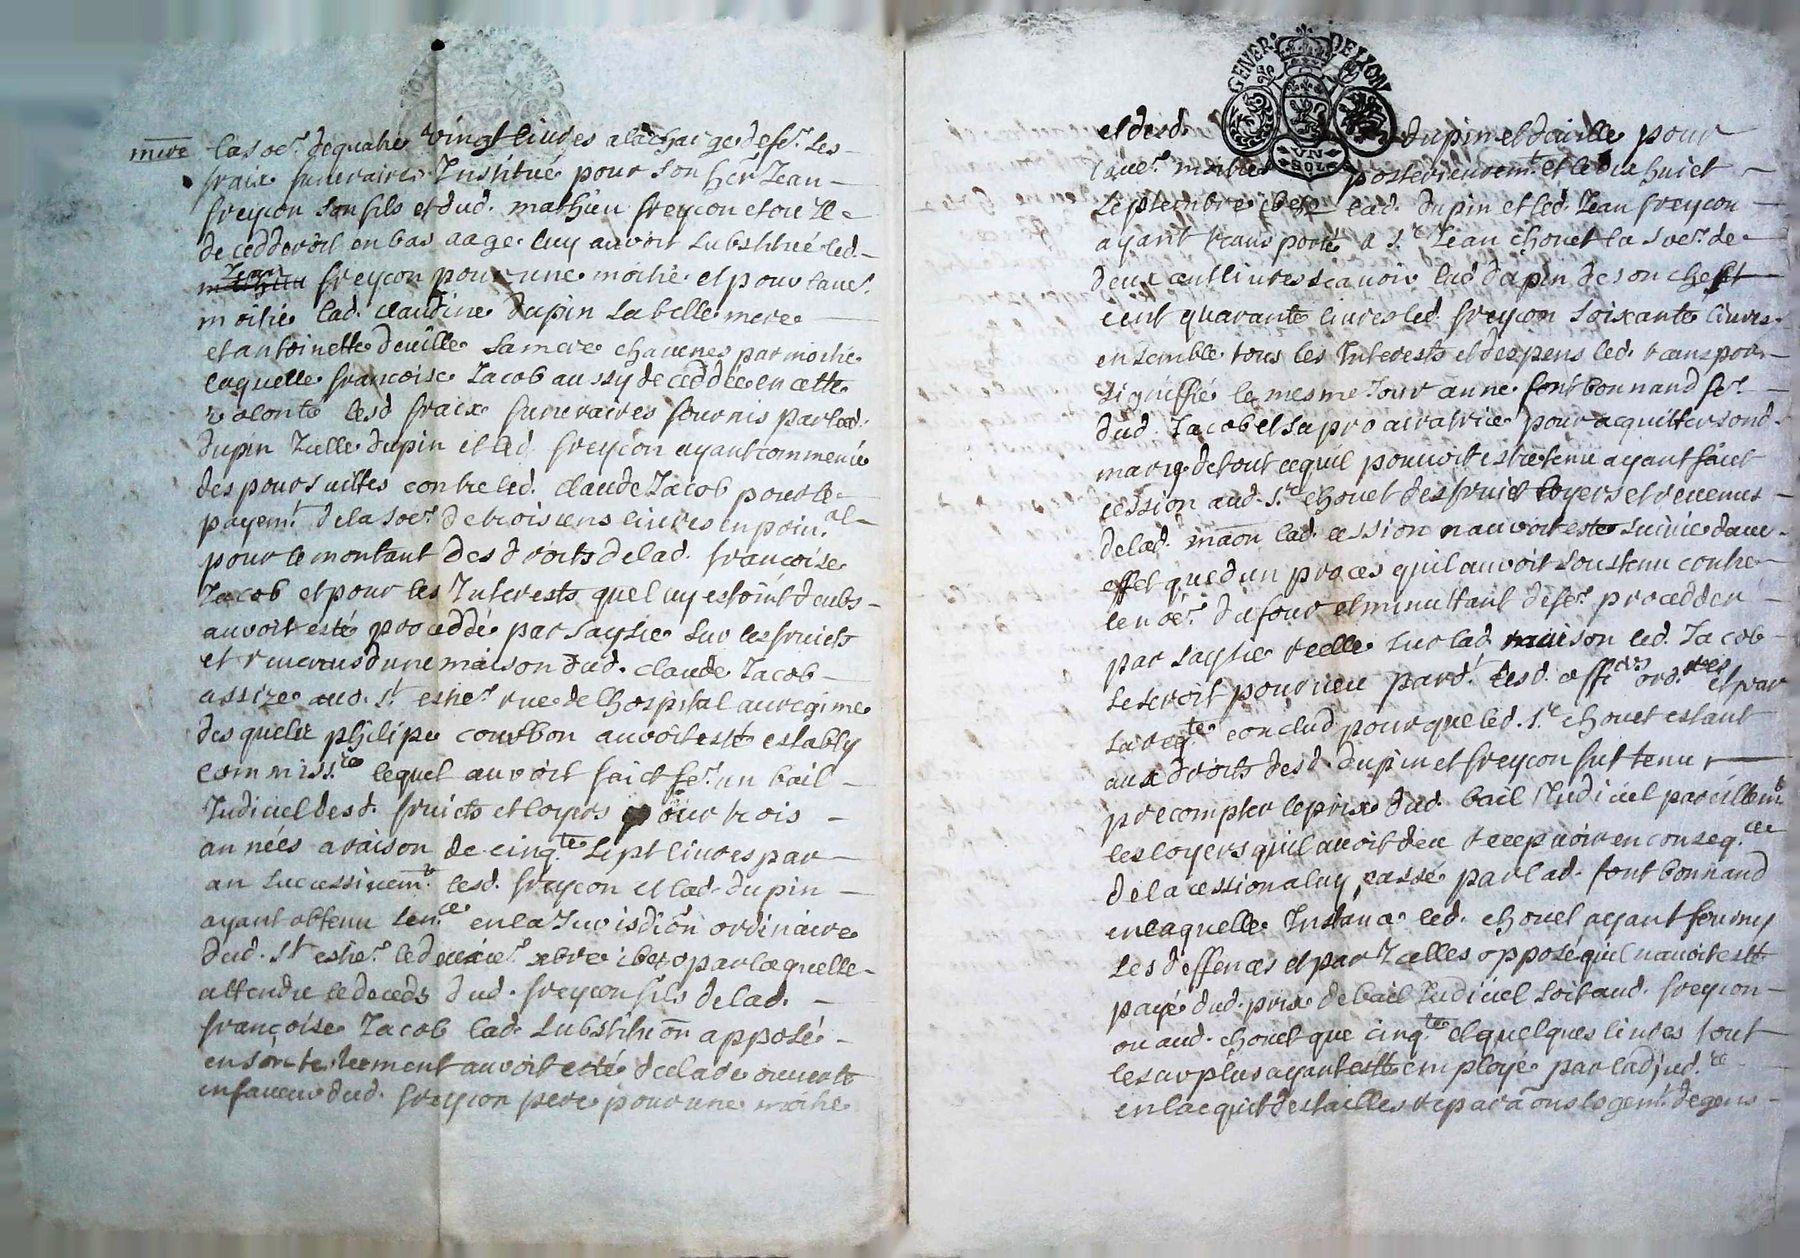 mere la so.er de quatre vingt livres a la charge de se.s les
fraix funeraires Institué pour son her Jean
freycon son fils et dud. mathieu freycon et ou Il
decedderoit en bas aage luy auroit substitué led.
Jean freycon pour une moitié et pour lautr.
moitié lad. claudine dupin sa belle mere
et antoinette deville sa mere chacunes par moitié
laquelle francoise Jacob aussy deceddée en cette
volonté lesd fraix funeraires fournis par lad.
dupin Icelle dupin et led. freycon ayant commencé
des poursuittes contre led. claude Jacob pour le
payem.t de la so.e de trois cens livres en prin.al
pour le montant des droits de lad. francoise
Jacob et pour les Interests quel uy estoint deubs
auroit esté proceddé par saysie sur les fruicts
et revenus dune maison dud. claude Jacob
assize aud. S.t estie.e rue de lhospital au regime
desquels philipe courbon auroit esté estably
commiss.re lequel auroit faict fe.r un bail
Judiciel desd. fruicts et loyers pour trois
années a raison de cinq.te sept livres par
an successivem.t lesd. freycon et lad. dupin
ayant obtenu sen.ce en la Jurisdiõn ordinaire
dud. S.t estie.e le xbre par laquelle
attendu le deceds dud. freycon fils de lad.
francoise Jacob lad. substituõn apposé
en son testement auroit esté declaré ouverte
en faveur dud. freycon pere pour une moitié
GENER. DE LYON
UN SOL
et desd. dupin et deville pour
lautr. moitié posterieurem.t et le dix huict
septembre lad. dupin et led. Jean freycon
ayant transporté a S.r Jean chovet la so.e de
deux cent livres scavoir lad dupin de son chefst
cent quarante livres led. freycon soixante livres
ensemble tous les Interests et despens led. transport
signiffié le mesme Jour anne font bonnand fe.
dud. Jacob et sa procuratrice pour acquitter sond.
mary de tout ce quil pouvoit estre tenu ayant faict
cession aud. S.r chovet des fruict loyers et revenus
de lad. maõn lad. cession nauroit esté suivie dautr.
effet que dun proces quil auroit soustenu contre
le no.e dufour et minuttant de fe.r procedder
par saysie reelle sur lad. maison led. Jacob
se seroit pourveu pard.t lesd. offi.ers ord.res et par
sa req.te conclud pour que led. S.r chovet estant
aux droits desd. dupin et freycon fut tenu
precompter le prix dud. bail Judiciel pareillem.t
les loyers quil auroit deu recepvoir en conseq.ce
de la cession a luy passé par lad. font bonnand
en laquelle Instance led. chovet ayant fourny
ses deffences et par Icelles opposé quil nauroit esté
payé dud. prix de bail Judiciel soit aud. freycon
ou aud. chovet que cinq.te et quelques livres tout
le surplus ayant esté employé par ladjud.re
en lacquit des tailles reparaõns logem.t de gens